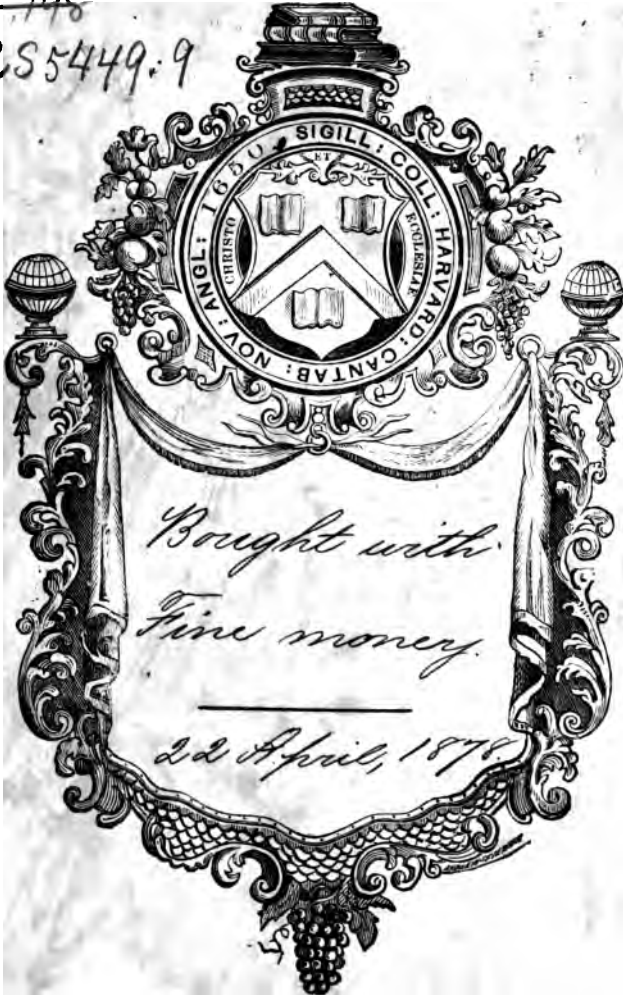 S5449.9
SIGILL: COLL: HARVARD: CANTAB: NOV: ANGL: 1650
ET
CHRISTO
ECCLESIAE
Bought with
Fine money.
22 April, 1878.